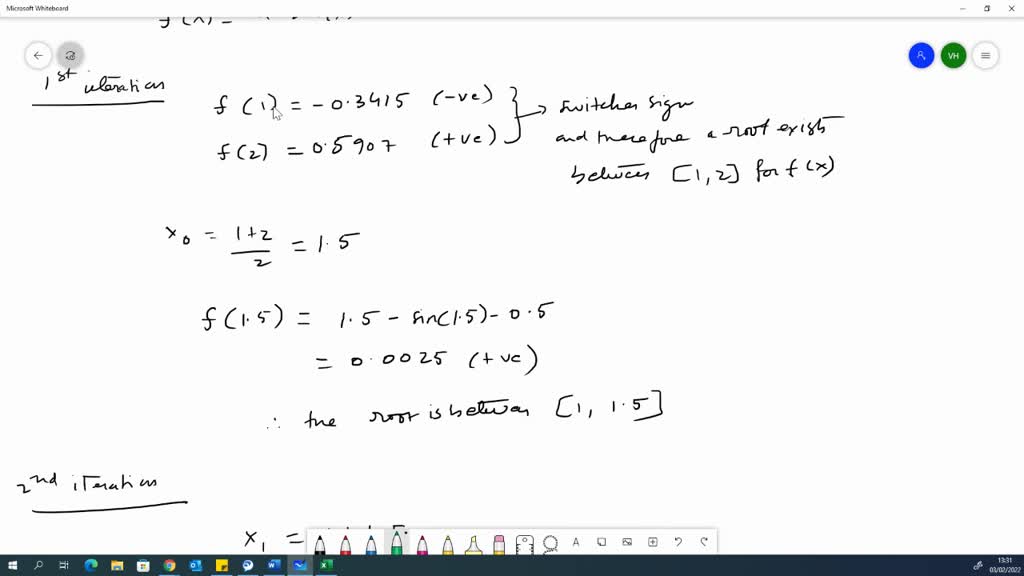 Microsoft Whiteboard
f(x) =
VH
1st iteration
f (1) = -0.3415 (-ve)
f(2) = 0.5907 (+ve)
switches sign
and therefore a root exists
between [1,2] for f(x)
x0 = 1+2 / 2 = 1.5
f(1.5) = 1.5 - sin(1.5) - 0.5
= 0.0025 (+ve)
∴ the root is between [1, 1.5]
2nd iteration
x1 =
13:31
03/02/2022